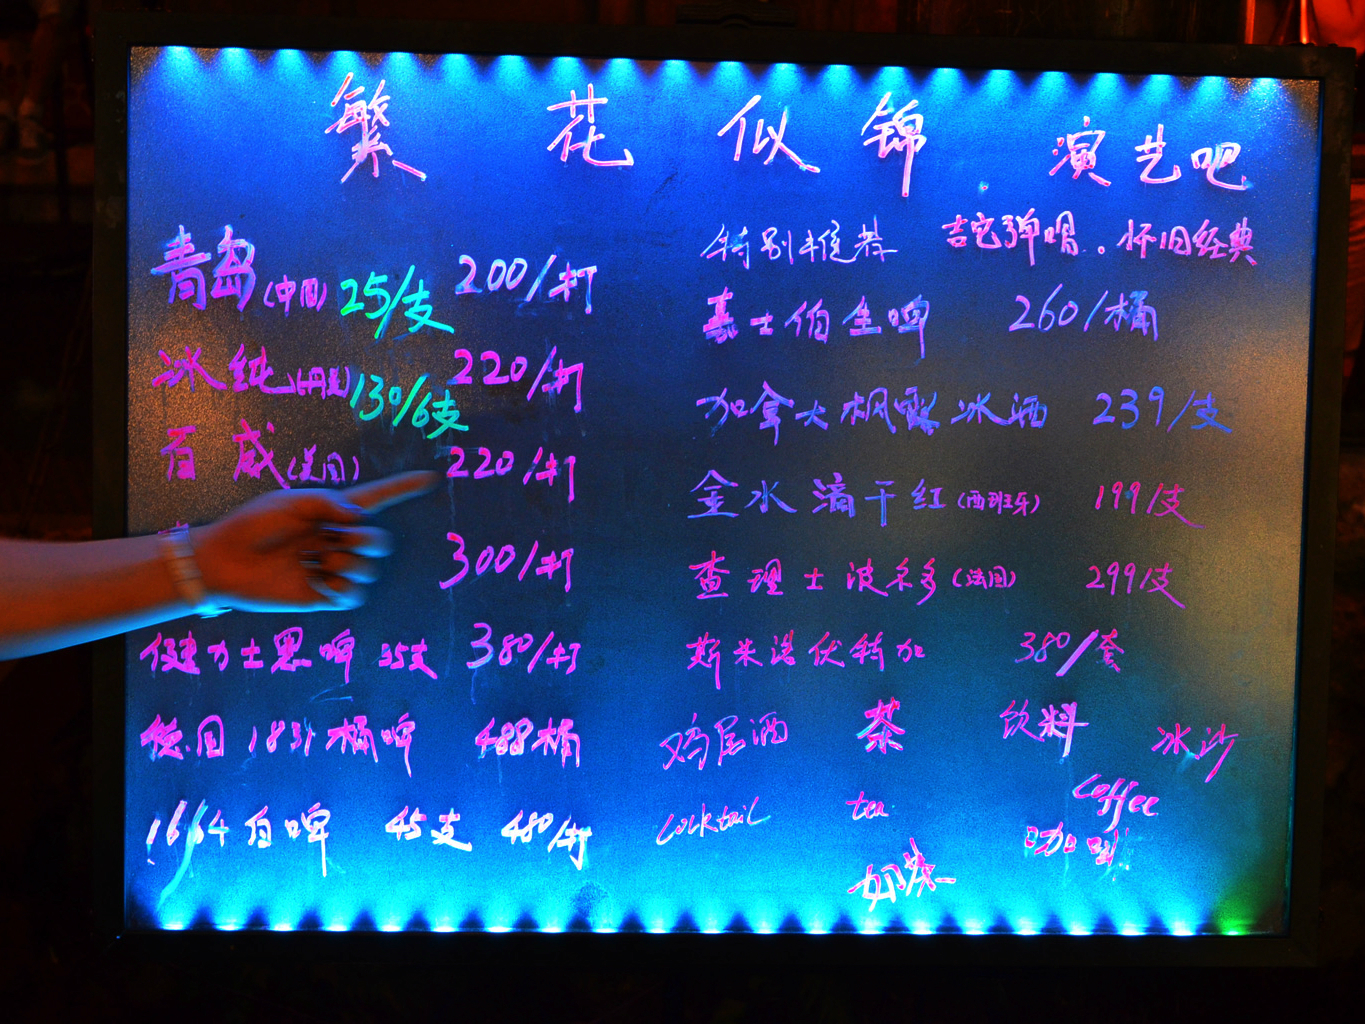 繁花似锦 演艺吧
青岛(中国) 25/支 200/打
冰纯 130/6支 220/打
百威(美国) 220/打
300/打
健力士黑啤 35支 380/打
德国1831桶啤 488桶
1664白啤 45支 480/打
特别推荐 吉它弹唱。怀旧经典
嘉士伯生啤 260/桶
加拿大枫露冰酒 239/支
金水滴干红(西班牙) 199/支
查理士波尔多(法国) 299/支
斯米诺伏特加 380/套
鸡尾酒 茶 饮料 冰沙
cocktail tea Coffee
咖啡
奶茶